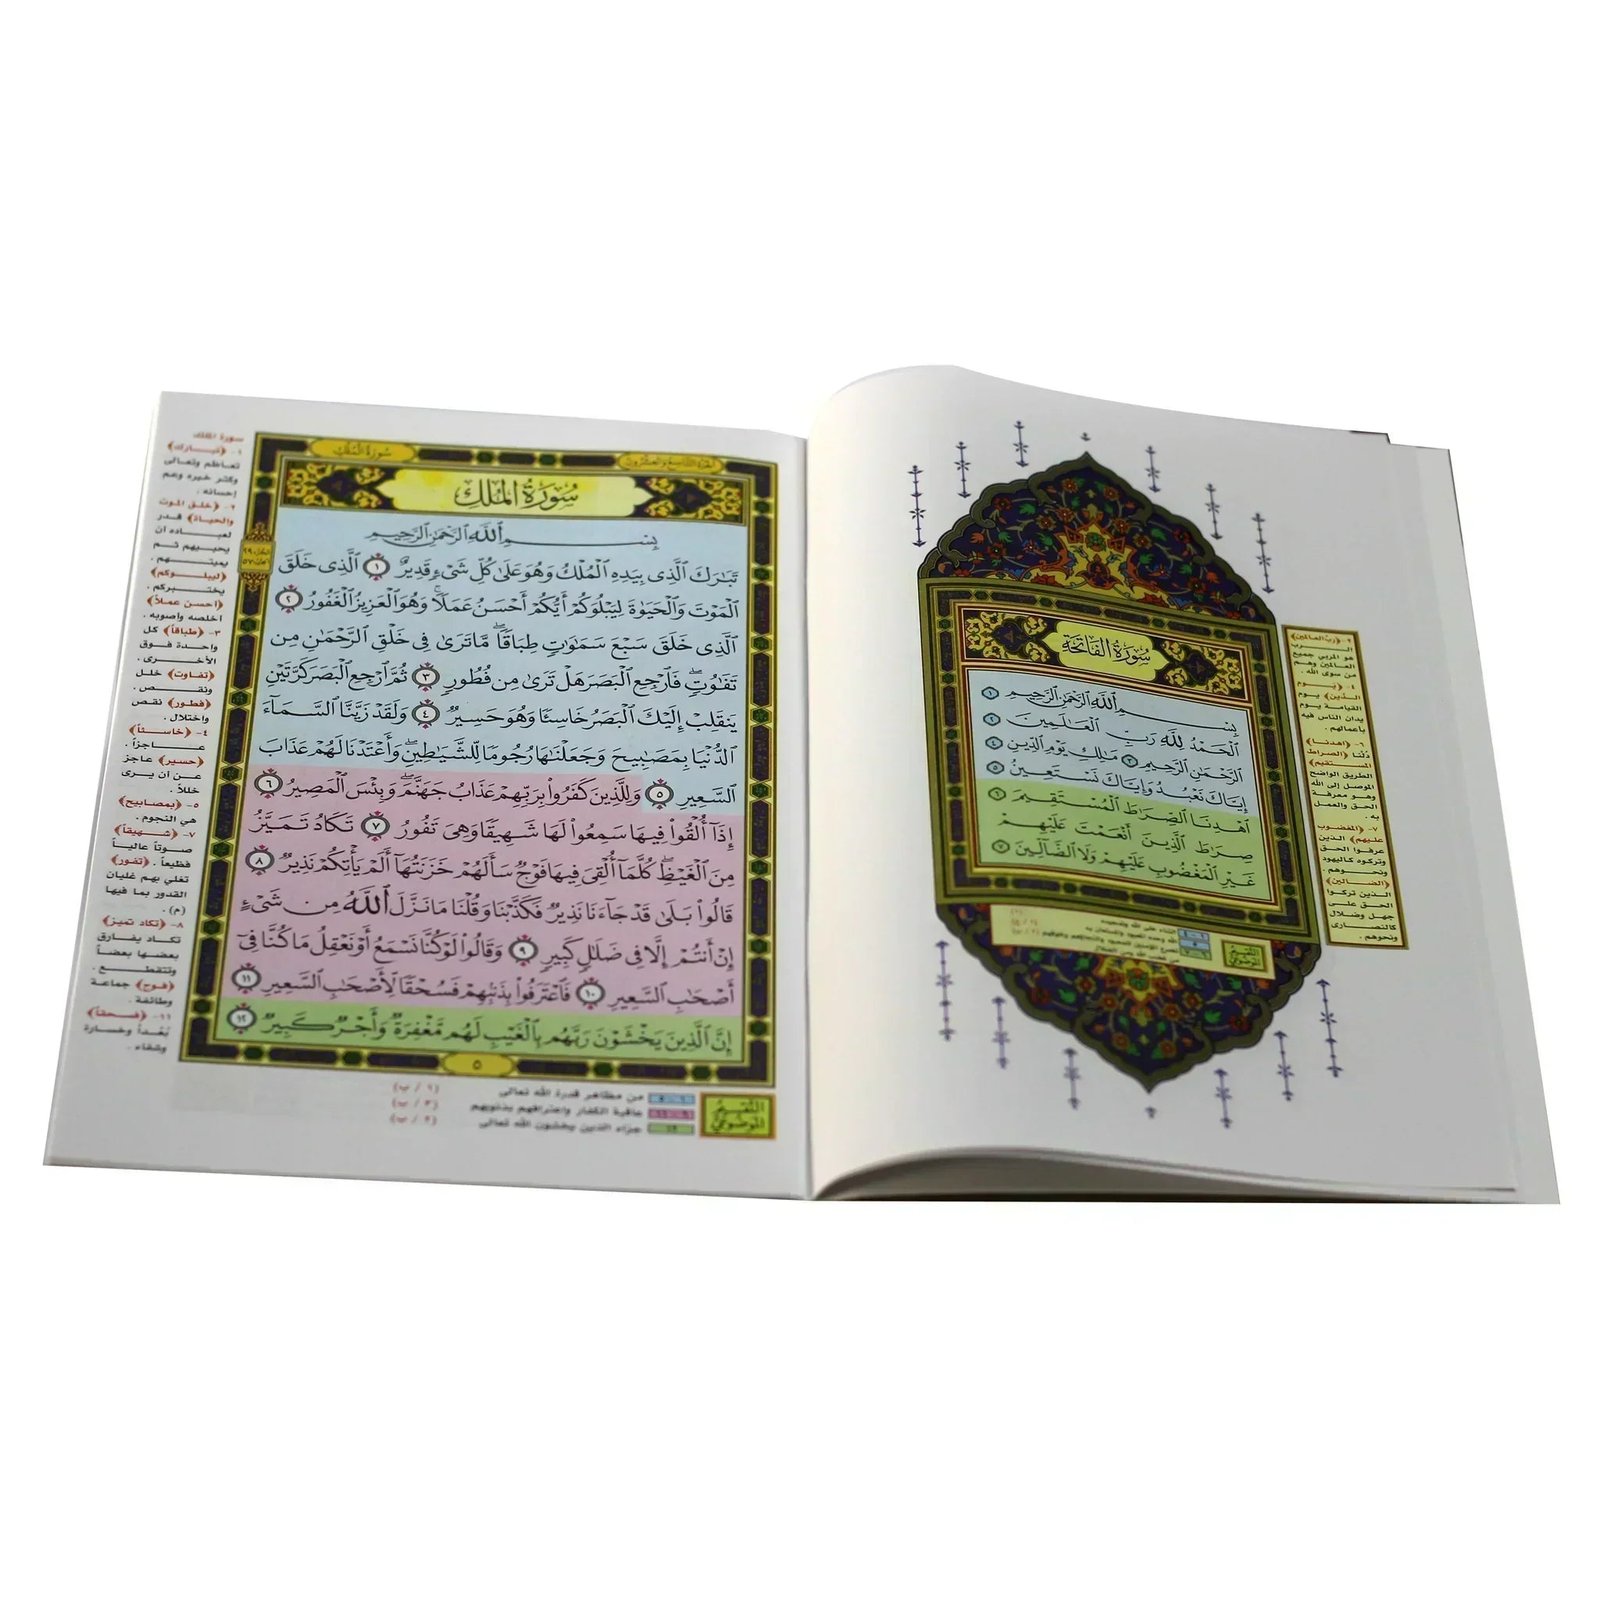 سُورَةُ الفَاتِحَة
بِسْمِ ٱللَّهِ ٱلرَّحْمَٰنِ ٱلرَّحِيمِ ١
ٱلْحَمْدُ لِلَّهِ رَبِّ ٱلْعَٰلَمِينَ ٢
ٱلرَّحْمَٰنِ ٱلرَّحِيمِ ٣ مَٰلِكِ يَوْمِ ٱلدِّينِ ٤
إِيَّاكَ نَعْبُدُ وَإِيَّاكَ نَسْتَعِينُ ٥
ٱهْدِنَا ٱلصِّرَٰطَ ٱلْمُسْتَقِيمَ ٦
صِرَٰطَ ٱلَّذِينَ أَنْعَمْتَ عَلَيْهِمْ
غَيْرِ ٱلْمَغْضُوبِ عَلَيْهِمْ وَلَا ٱلضَّآلِّينَ ٧
التقسيم
الموضوعي
٢- ﴿رب العالمين﴾
الرب
هو المربي جميع
العالمين وهم
من سوى الله .
٤- ﴿يوم
الدين﴾ يوم
القيامة يوم
يدان الناس فيه
بأعمالهم .
٦- ﴿اهدنا﴾
دلنا ﴿الصراط
المستقيم﴾
الطريق الواضح
الموصل إلى الله
وهو معرفة
الحق والعمل
به .
٧- ﴿المغضوب
عليهم﴾ الذين
عرفوا الحق
وتركوه كاليهود
ونحوهم .
﴿الضالين﴾
الذين تركوا
الحق على
جهل وضلال
كالنصارى
ونحوهم .
الجزء التاسع والعشرون
سُورَةُ المُلْكِ
سُورَةُ المُلْكِ
بِسْمِ ٱللَّهِ ٱلرَّحْمَٰنِ ٱلرَّحِيمِ
تَبَٰرَكَ ٱلَّذِى بِيَدِهِ ٱلْمُلْكُ وَهُوَ عَلَىٰ كُلِّ شَىْءٍ قَدِيرٌ ١ ٱلَّذِى خَلَقَ
ٱلْمَوْتَ وَٱلْحَيَوٰةَ لِيَبْلُوَكُمْ أَيُّكُمْ أَحْسَنُ عَمَلًا ۚ وَهُوَ ٱلْعَزِيزُ ٱلْغَفُورُ ٢
ٱلَّذِى خَلَقَ سَبْعَ سَمَٰوَٰتٍ طِبَاقًا ۖ مَّا تَرَىٰ فِى خَلْقِ ٱلرَّحْمَٰنِ مِن
تَفَٰوُتٍ ۖ فَٱرْجِعِ ٱلْبَصَرَ هَلْ تَرَىٰ مِن فُطُورٍ ٣ ثُمَّ ٱرْجِعِ ٱلْبَصَرَ كَرَّتَيْنِ
يَنقَلِبْ إِلَيْكَ ٱلْبَصَرُ خَاسِئًا وَهُوَ حَسِيرٌ ٤ وَلَقَدْ زَيَّنَّا ٱلسَّمَآءَ
ٱلدُّنْيَا بِمَصَٰبِيحَ وَجَعَلْنَٰهَا رُجُومًا لِّلشَّيَٰطِينِ ۖ وَأَعْتَدْنَا لَهُمْ عَذَابَ
ٱلسَّعِيرِ ٥ وَلِلَّذِينَ كَفَرُوا۟ بِرَبِّهِمْ عَذَابُ جَهَنَّمَ ۖ وَبِئْسَ ٱلْمَصِيرُ ٦
إِذَآ أُلْقُوا۟ فِيهَا سَمِعُوا۟ لَهَا شَهِيقًا وَهِىَ تَفُورُ ٧ تَكَادُ تَمَيَّزُ
مِنَ ٱلْغَيْظِ ۖ كُلَّمَآ أُلْقِىَ فِيهَا فَوْجٌ سَأَلَهُمْ خَزَنَتُهَآ أَلَمْ يَأْتِكُمْ نَذِيرٌ ٨
قَالُوا۟ بَلَىٰ قَدْ جَآءَنَا نَذِيرٌ فَكَذَّبْنَا وَقُلْنَا مَا نَزَّلَ ٱللَّهُ مِن شَىْءٍ
إِنْ أَنتُمْ إِلَّا فِى ضَلَٰلٍ كَبِيرٍ ٩ وَقَالُوا۟ لَوْ كُنَّا نَسْمَعُ أَوْ نَعْقِلُ مَا كُنَّا فِىٓ
أَصْحَٰبِ ٱلسَّعِيرِ ١٠ فَٱعْتَرَفُوا۟ بِذَنۢبِهِمْ فَسُحْقًا لِّأَصْحَٰبِ ٱلسَّعِيرِ ١١
إِنَّ ٱلَّذِينَ يَخْشَوْنَ رَبَّهُم بِٱلْغَيْبِ لَهُم مَّغْفِرَةٌ وَأَجْرٌ كَبِيرٌ ١٢
٥
التقسيم
الموضوعي
من مظاهر قدرة الله تعالى
عاقبة الكفار واعترافهم بذنوبهم
١٢ جزاء الذين يخشون الله تعالى
سورة الملك
١- ﴿تبارك﴾
تعاظم وتعالى
وكثر خيره وعم
إحسانه .
٢- ﴿خلق الموت
والحياة﴾ قدر
لعباده أن
يحييهم ثم
يميتهم .
﴿ليبلوكم﴾
يختبركم .
﴿أحسن عملاً﴾
أخلصه وأصوبه .
٣- ﴿طباقاً﴾ كل
واحدة فوق
الأخرى .
﴿تفاوت﴾ خلل
ونقص .
﴿فطور﴾ نقص
واختلال .
٤- ﴿خاسئاً﴾
عاجزاً .
﴿حسير﴾ عاجز
عن أن يرى
خللاً .
٥- ﴿بمصابيح﴾
هي النجوم .
٧- ﴿شهيقاً﴾
صوتاً عالياً
فظيعاً . ﴿تفور﴾
تغلي بهم غليان
القدور بما فيها
(م) .
٨- ﴿تكاد تميز﴾
تكاد يفارق
بعضها بعضاً
وتتقطع .
﴿فوج﴾ جماعة
وطائفة .
١١- ﴿فسحقاً﴾
بُعْداً وخسارة
وشقاء .